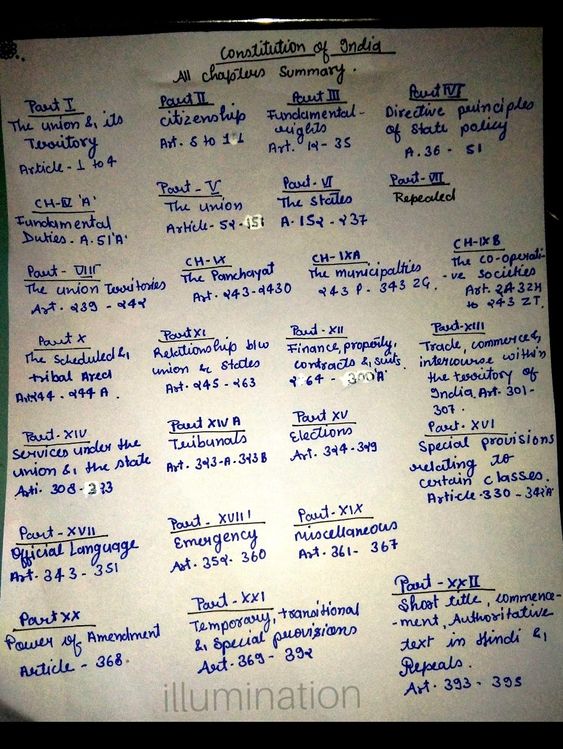 Constitution of India
All chapters Summary.
Part I
The union & its
Territory
Article - 1 to 4
Part II
citizenship
Art. 5 to 11
Part III
Fundamental-
rights
Art. 12 - 35
Part IV
Directive principles
of State policy
A. 36 - 51
CH-IV 'A'
Fundamental
Duties - A. 51'A'
Part - V
The Union
Article - 52 - 151
Part - VI
The States
A. 152 - 237
Part - VII
Repealed
Part - VIII
The union Territories
Art. 239 - 242
CH-IX
The Panchayat
Art. 243 - 243O
CH-IXA
The municipalties
243 P - 343 ZG.
CH-IXB
The co-operati-
-ve societies
Art. 243ZH
to 243 ZT.
Part X
The Scheduled &
tribal Area
Art 244 - 244 A.
Part XI
Relationship b/w
union & States
Art. 245 - 263
Part - XII
Finance, property,
contracts & suits.
264 - 300'A'
Part-XIII
Trade, commerce &
intercourse within
the territory of
India Art. 301-
307.
Part-XIV
Services under the
union & the state
Arti. 308 - 323
Part XIV A
Tribunals
Art. 323-A - 323B
Part XV
Elections
Art. 324 - 329
Part - XVI
Special provisions
relating to
certain classes.
Article - 330 - 342'A'
Part - XVII
Official Language
Art. 343 - 351
Part - XVIII
Emergency
Art. 352 - 360
Part - XIX
miscellaneous
Art. 361 - 367
Part XX
Power of Amendment
Article - 368.
Part - XXI
Temporary, transitional
& Special provisions
Art - 369 - 392
Part - XXII
Short title, commence-
-ment, Authoritative
text in Hindi &
Repeals.
Art. 393 - 395
illumination